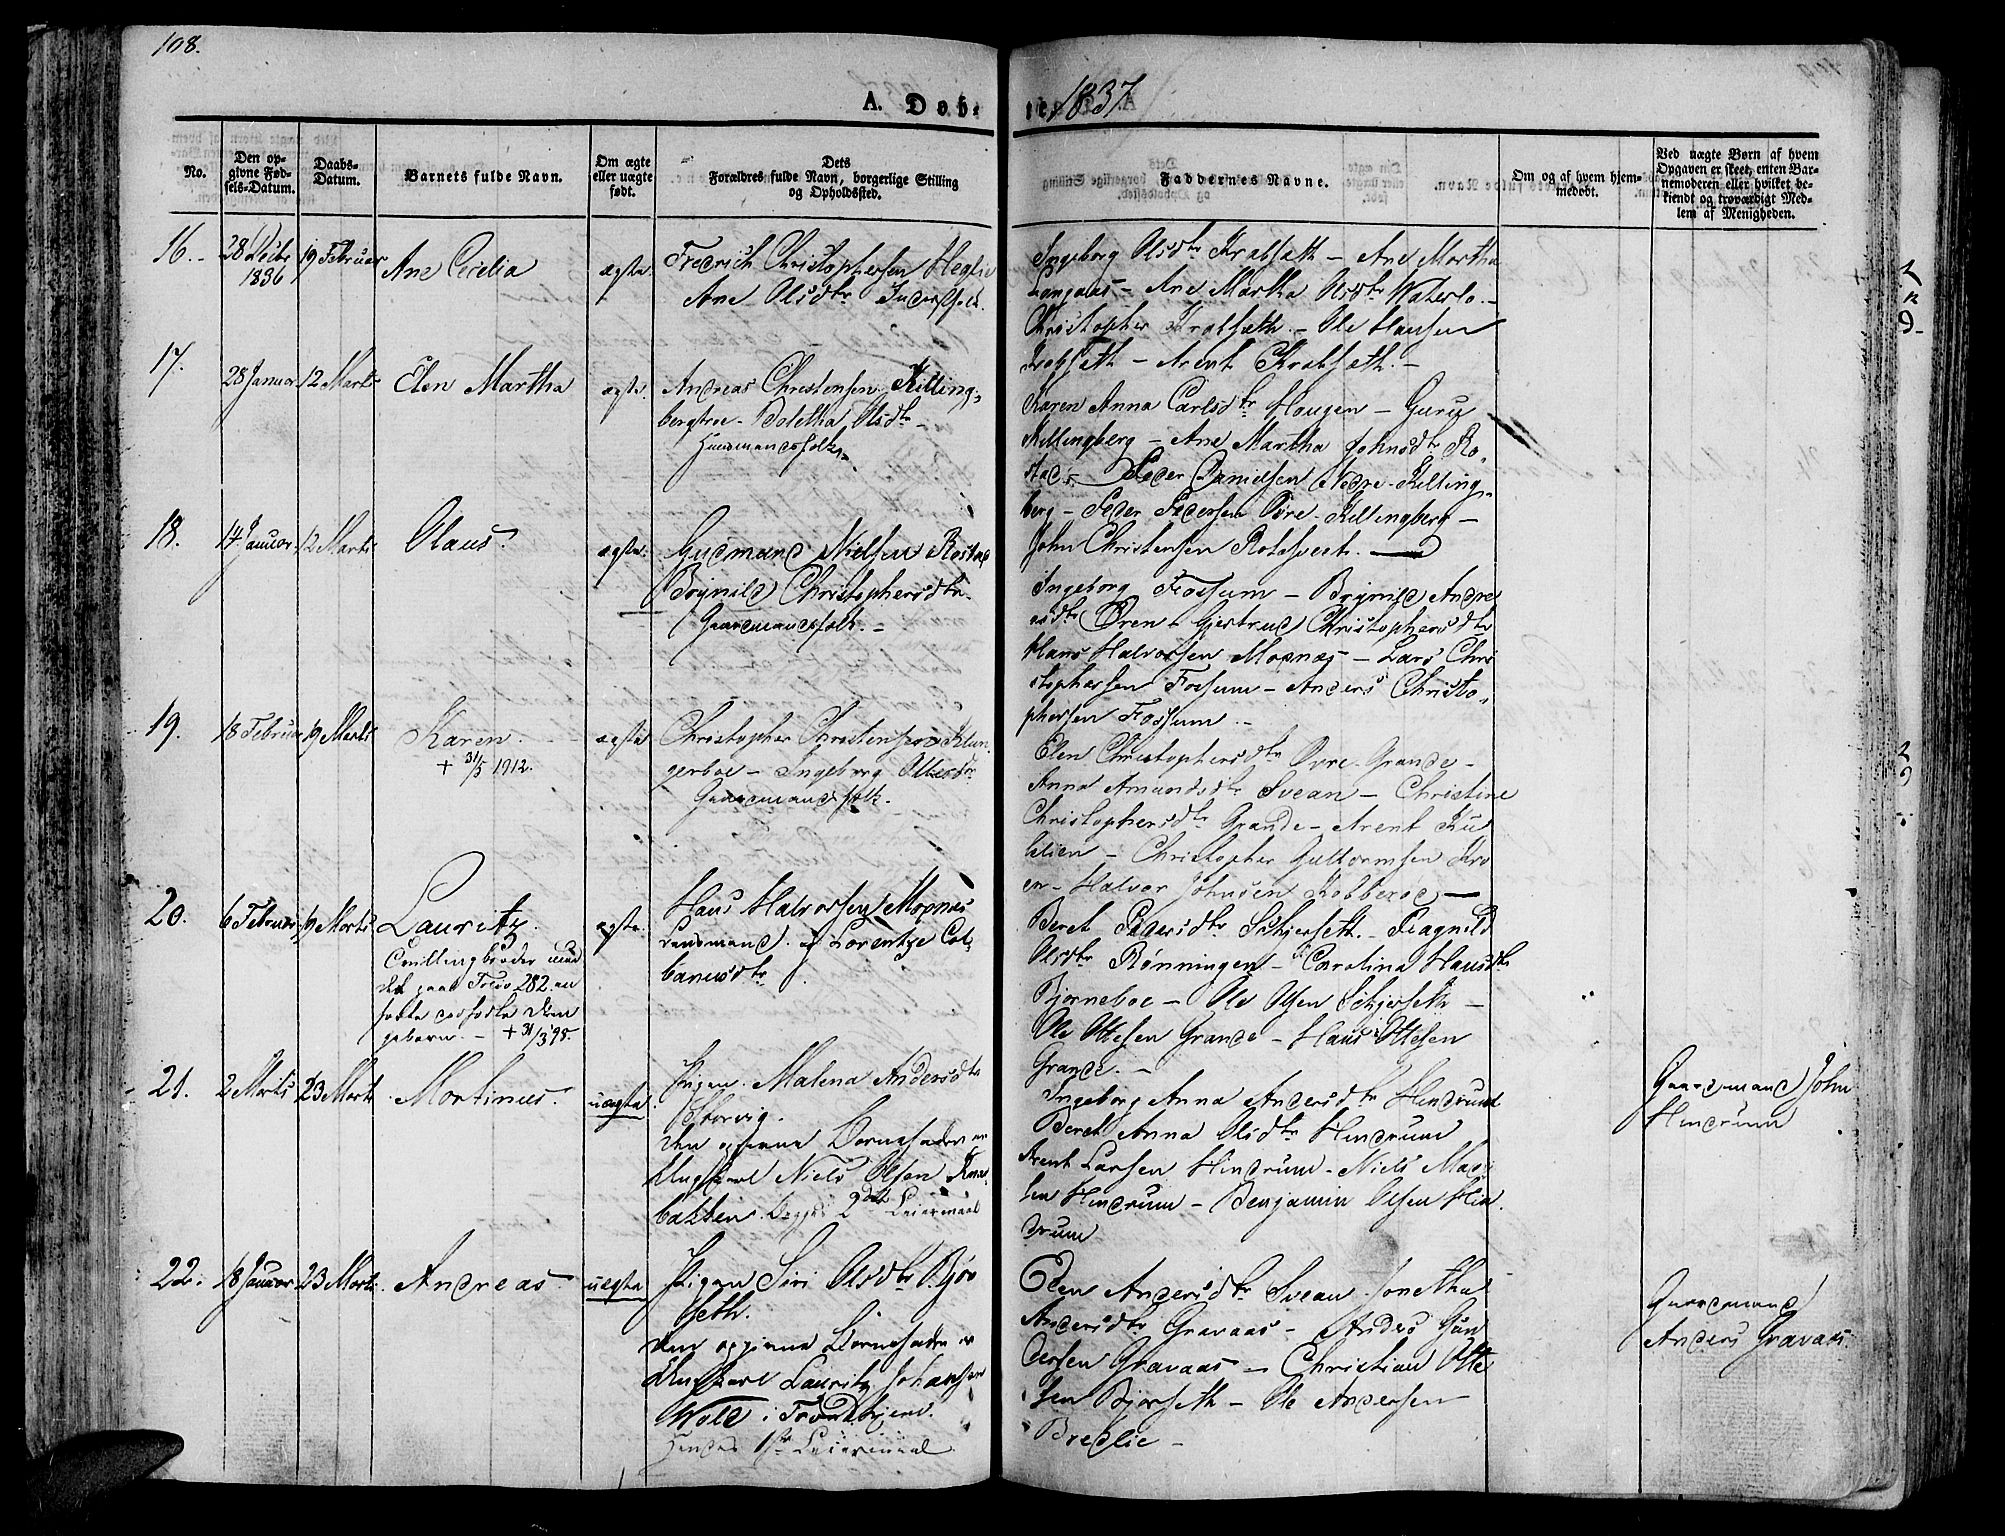 108.
A. Døb-
te. 1837
No.
Den op-
givne Fød-
sels-Datum.
Daabs-
Datum.
Barnets fulde Navn.
Om ægte
eller uægte
født.
Dets
Forældres fulde Navn, borgerlige Stilling
og Opholdssted.
Faddernes Navne.
Om og af hvem hjem-
medøbt.
Ved uægte Børn af hvem
Opgaven er skeet, enten Bar-
nemoderen eller hvilket be-
kiendt og troværdigt Med-
lem af Menigheden.
16.
28 Decbr
1836
19 Februar
Ane Cecilia
ægte
Fredrich Christophersen Heglie
Ane Olsdtr Inderstfolk.
Ingeborg Olsdtr Krabsæth - Ane Martha
Langaas - Ane Martha Olsdtr Waterlo -
Christopher Krabsæth - Ole Hansen
Krabsæth - Arent Krabsæth. -
17.
28 Januar
12 Marts
Elen Martha
ægte.
Andreas Christensen Killing-
bergtrøe - Boletha Olsdtr -
Huusmandsfolk
Karen Anna Carlsdtr Haugen - Guru
Killingberg - Ane Martha Johnsdtr Ro-
stad - Peder Danielsen Nedre-Killing-
berg - Peder Pedersen Øvre-Killingberg -
John Christensen Roldsvest.
18.
14 Januar
12 Marts
Olaus.
ægte.
Gudmund Nielsen Rostad
Brynild Christophersdtr
Gaardmandsfolk. -
Ingeborg Fossum - Brynild Andre
asdtr Øren - Gjertrud Christophersdtr
Hans Halvorsen Mognæs - Lars Chri
stophersen Fossum - Anders Christo-
phersen Fossum. -
19.
18 Februar
19 Marts
Karen.
+ 31/5 1912.
ægte
Christopher Christensen Klun
gerboe - Ingeborg Olsdtr
Gaardmandsfolk.
Elen Christophersdtr Øvre-Grande -
Anna Amundsdtr Svean - Christine
Christophersdtr Grande - Arent Ku
lslien - Christopher Guttormsen Kro
en - Halvor Johnsen Kobberøe -
20.
6 Februar
19 Marts
Lauritz.
Tvillingbroder
282
+ 31/3 98.
ægte.
Hans Halvorsen Mognæs
Lensmand. og Lorentze Col-
banusdtr
Beret Pedersdtr Schjerseth. - Ragnild
Olsdtr Rønningen - Carolina Hansdtr
Bjørneboe - Ole Olsen Schjerseth -
Ole Ottesen Grande - Hans Ottesen
Grande. -
21.
2 Marts
23 Marts
Martinus.
uægte
Pigen Malena Andersdtr
Storvig.
Den opgivne Barnefader er
Ungkarl Niels Olsen
bakken. Begges 2det Leiermaal
Ingeborg Anna Andersdtr Hindrum
Beret Anna Olsdtr Hindrum
Arent Larsen Hindrum - Niels
sen Hindrum - Benjamin Olsen Hin
drum
Gaardmand John
Hindrum
22.
18 Januar
23 Marts
Andreas.
uægte
Pigen Siri Olsdtr Bjør
seth.
Den opgivne Barnefader er
Ungkarl Lauritz Johansen
Wold i Trondhjem.
Hendes 1ste Leiermaal
Elen Andersdtr Svean - Jonetha
Andersdtr Gravaas - Anders Gun
dersen Gravaas - Christian Otte
sen Bjørseth - Ole Andersen
Bredlie -
Gaardmand
Anders Gravaas.